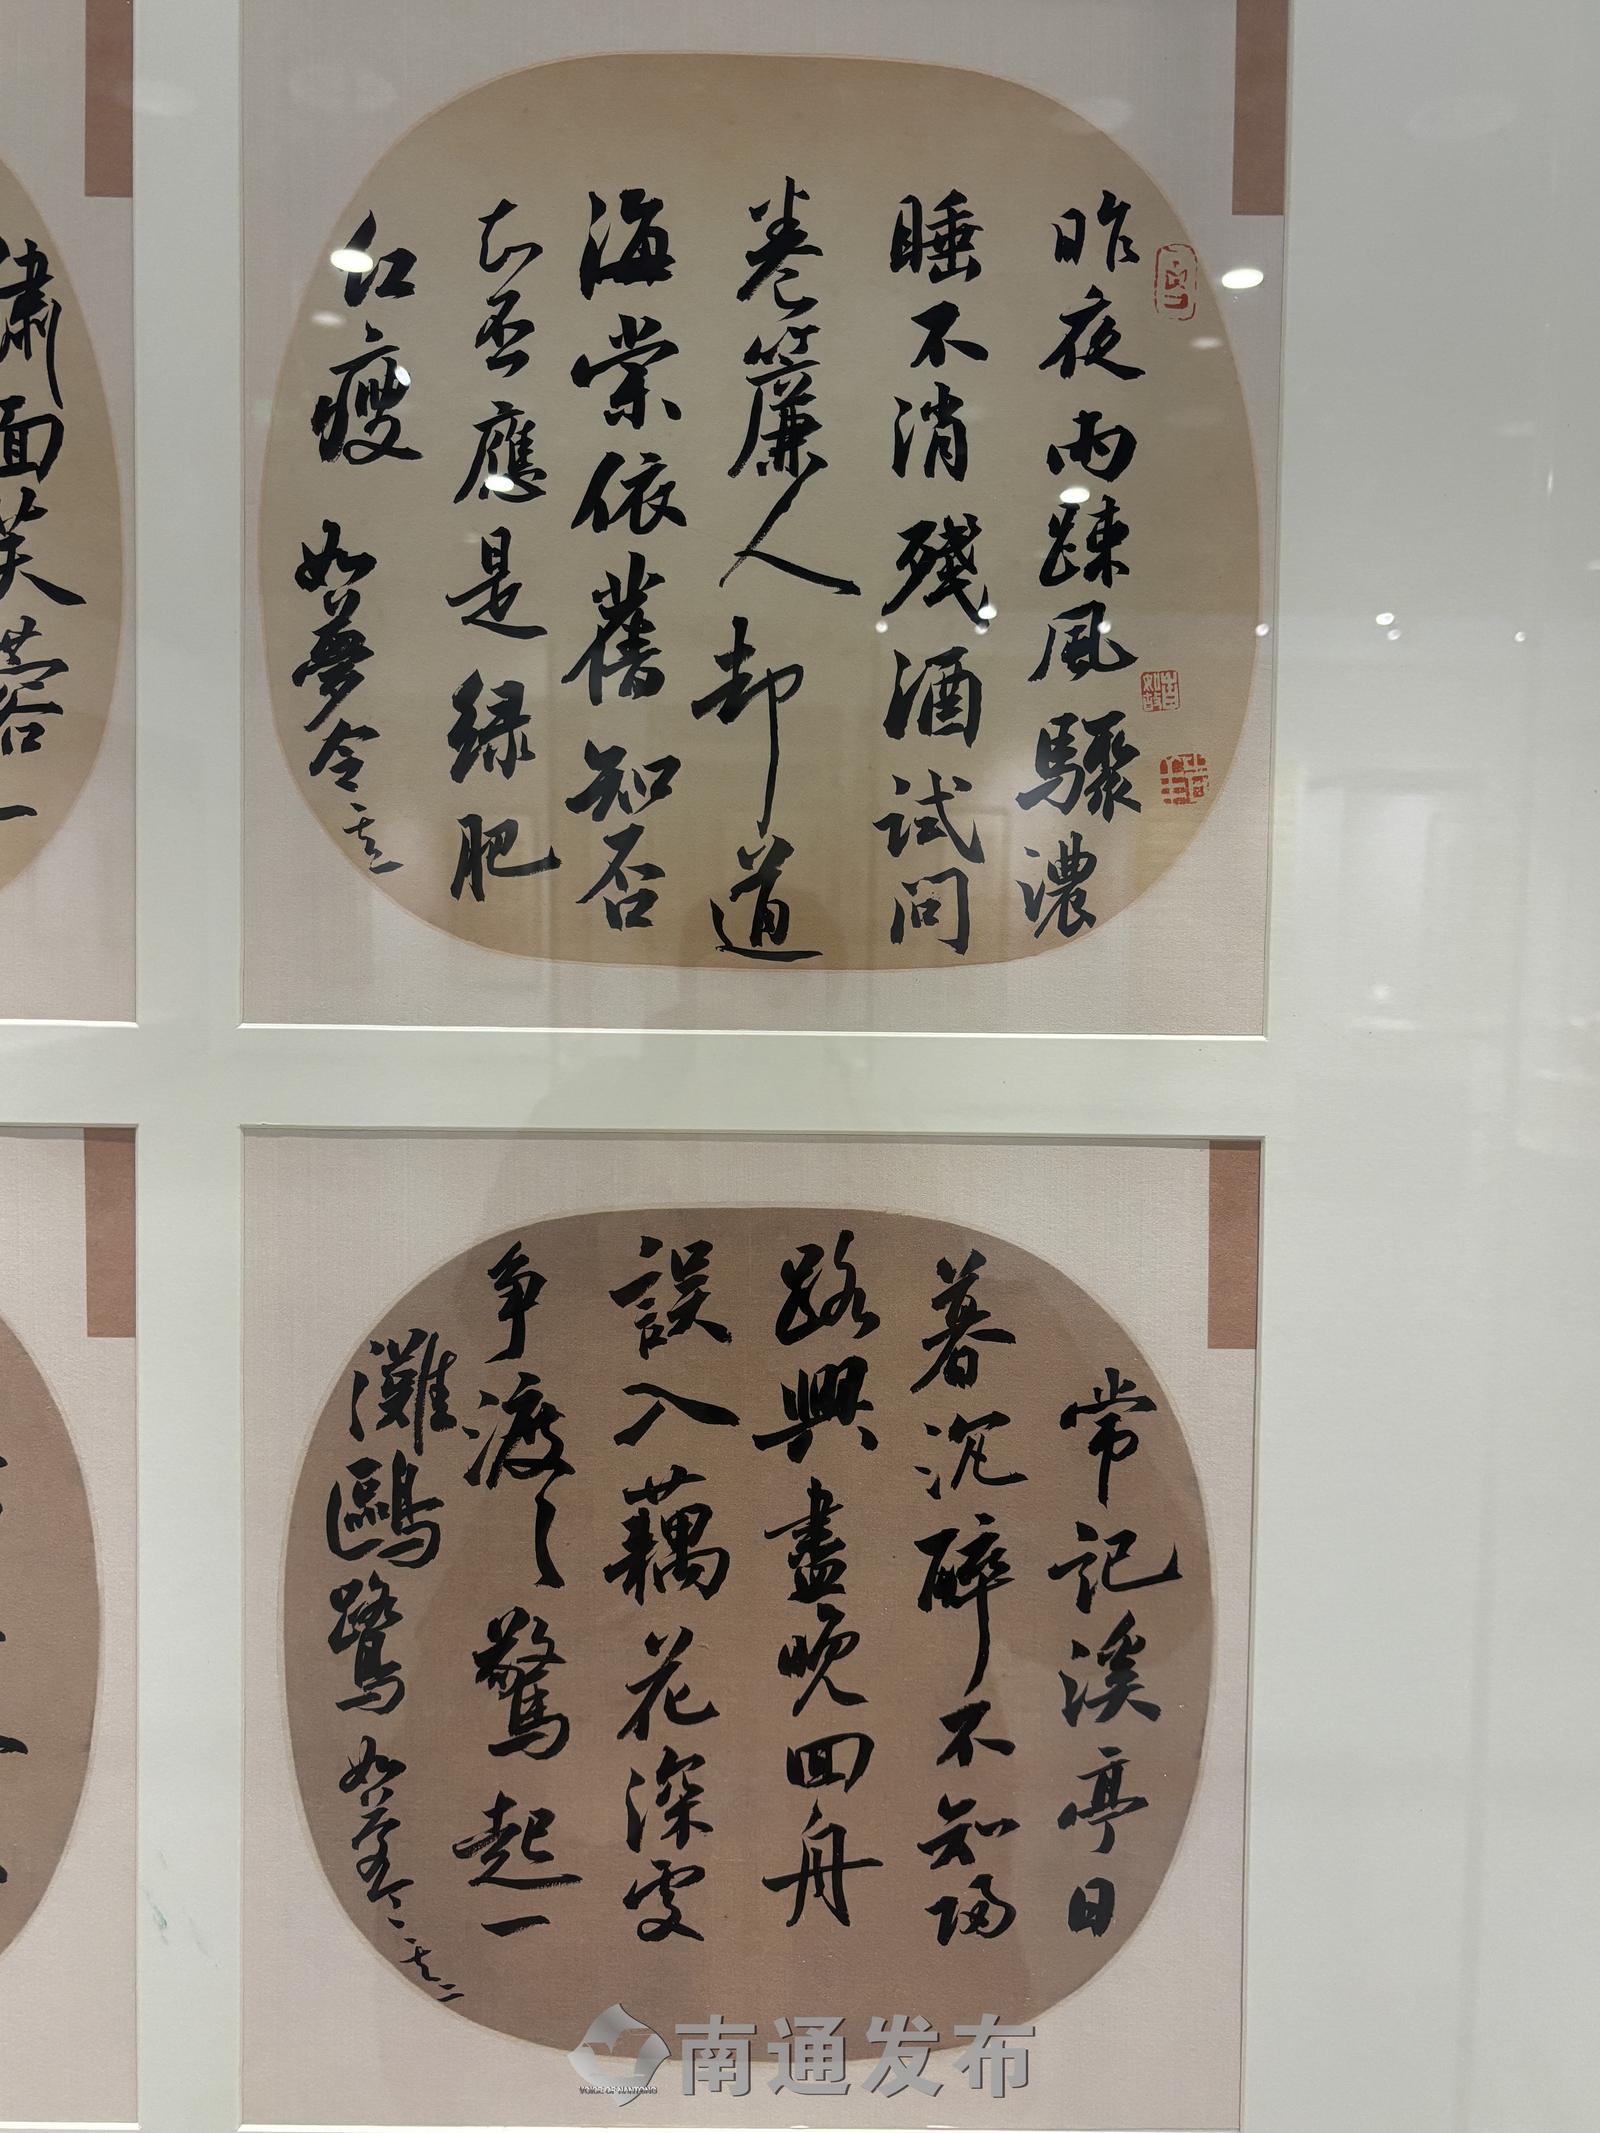 昨夜雨踈風驟濃
睡不消殘酒試問
卷簾人却道
海棠依舊知否
知否應是緑肥
紅瘦 如夢令 其一
繡面芙蓉一
常記溪亭日
暮沉醉不知歸
路興盡晚回舟
誤入藕花深處
争渡〻驚起一
灘鷗鷺 如夢令 其二
南通发布
VOICE OF NANTONG